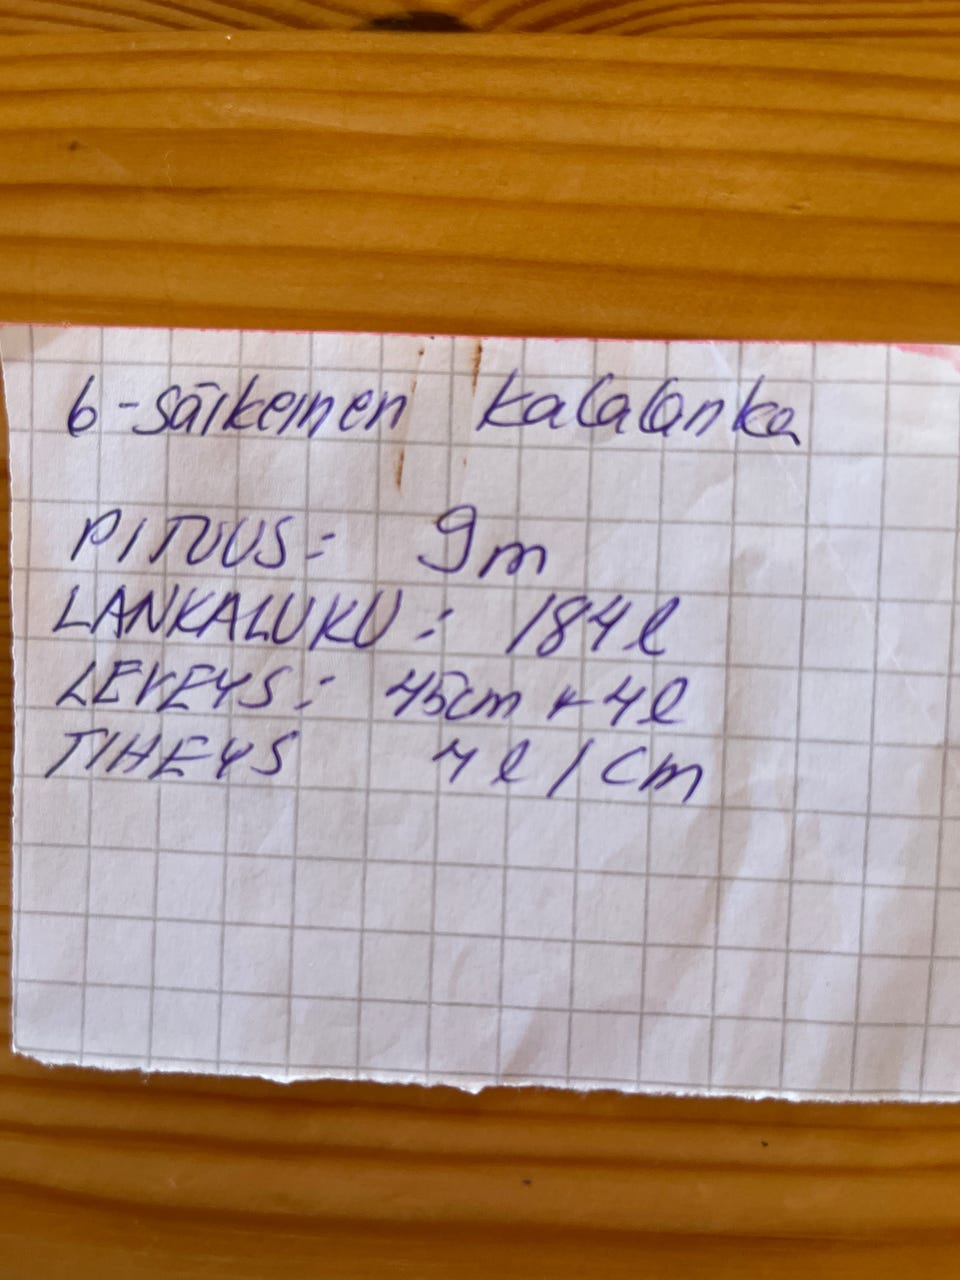 6-säikeinen kalalanka
PITUUS: 9m
LANKALUKU: 184 l
LEVEYS: 45cm + 4 l
TIHEYS 4 l / cm